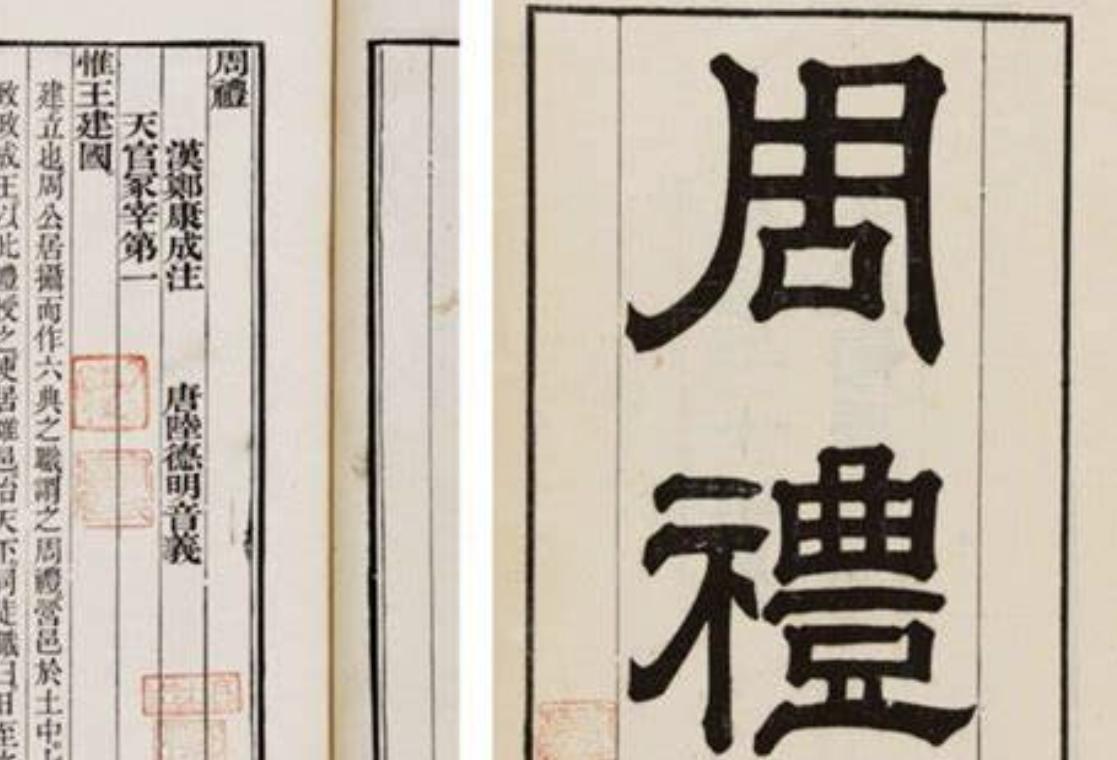 周禮
周禮
漢鄭康成注　唐陸德明音義
天官冢宰第一
惟王建國
建立也周公居攝而作六典之職謂之周禮營邑於土中七
致政成王以此禮授之使居雒邑治天下司徒職曰日至